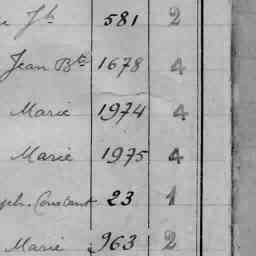 Jh 581 2
Jean Bte 1678 4
Marie 1974 4
Marie 1975 4
ph. Constant 23 1
Marie 963 2